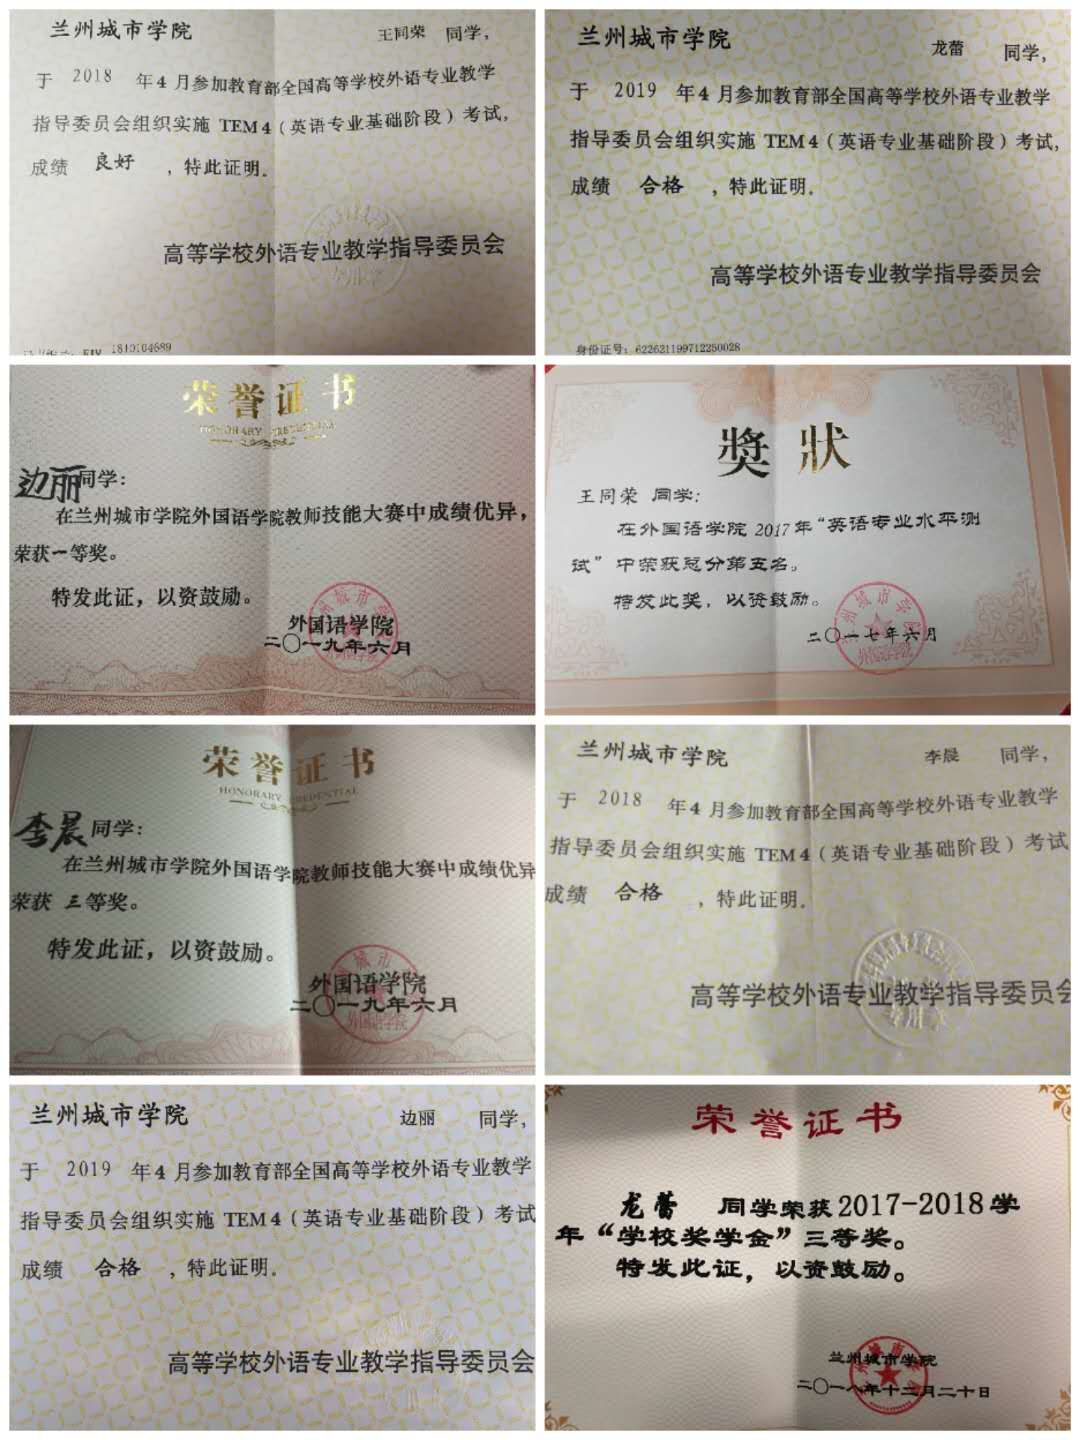 兰州城市学院 王同荣 同学，
于 2018 年4月参加教育部全国高等学校外语专业教学
指导委员会组织实施 TEM4（英语专业基础阶段）考试，
成绩 良好 ，特此证明。
高等学校外语专业教学指导委员会
专用章
1810104689
兰州城市学院 龙蕾 同学，
于 2019 年4月参加教育部全国高等学校外语专业教学
指导委员会组织实施 TEM4（英语专业基础阶段）考试，
成绩 合格 ，特此证明。
高等学校外语专业教学指导委员会
身份证号：622621199712250028
荣誉证书
HONORARY CREDENTIAL
边丽同学：
在兰州城市学院外国语学院教师技能大赛中成绩优异，
荣获一等奖。
特发此证，以资鼓励。
外国语学院
二〇一九年六月
奬狀
王同荣 同学：
在外国语学院 2017年“英语专业水平测
试”中荣获总分第五名。
特发此奖，以资鼓励。
二〇一七年六月
荣誉证书
HONORARY CREDENTIAL
李晨同学：
在兰州城市学院外国语学院教师技能大赛中成绩优异
荣获 三等奖。
特发此证，以资鼓励。
外国语学院
二〇一九年六月
兰州城市学院 李晨 同学，
于 2018 年4月参加教育部全国高等学校外语专业教学
指导委员会组织实施 TEM4（英语专业基础阶段）考试
成绩 合格 ，特此证明。
高等学校外语专业教学指导委员会
专用章
兰州城市学院 边丽 同学，
于 2019 年4月参加教育部全国高等学校外语专业教学
指导委员会组织实施 TEM4（英语专业基础阶段）考试
成绩 合格 ，特此证明。
高等学校外语专业教学指导委员会
荣誉证书
龙蕾 同学荣获2017-2018学
年“学校奖学金”三等奖。
特发此证，以资鼓励。
兰州城市学院
二〇一八年十二月二十日